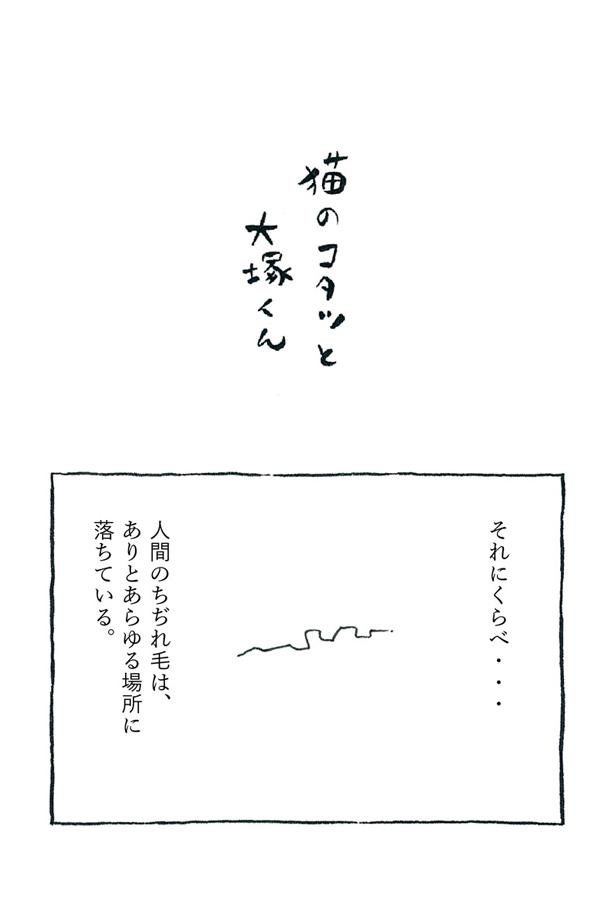 猫のコタツと
大塚くん
それにくらべ・・・
人間のちぢれ毛は、
ありとあらゆる場所に
落ちている。